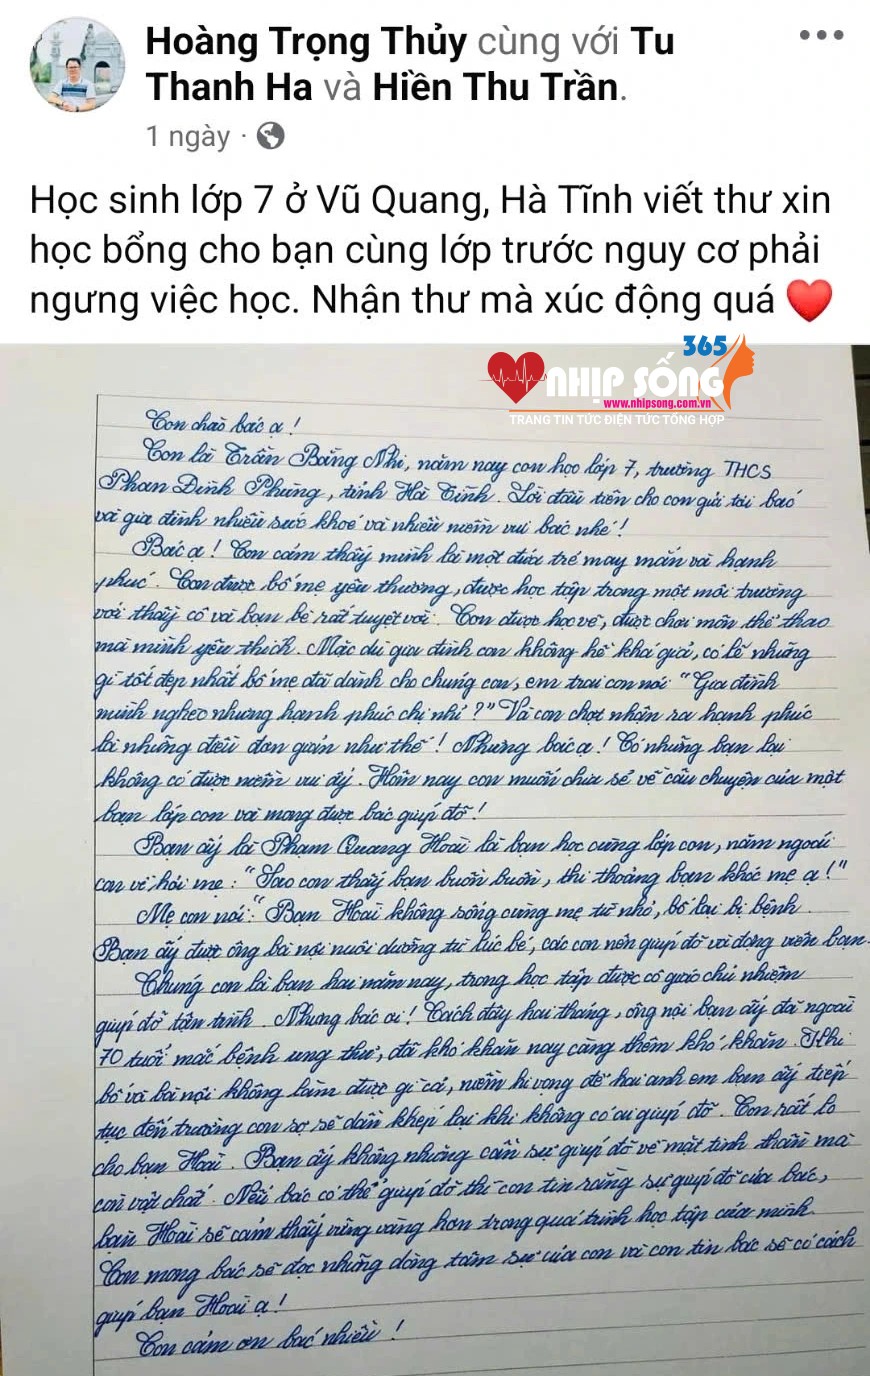 Hoàng Trọng Thủy cùng với Tu
Thanh Ha và Hiền Thu Trần.
1 ngày ·
Học sinh lớp 7 ở Vũ Quang, Hà Tĩnh viết thư xin
học bổng cho bạn cùng lớp trước nguy cơ phải
ngưng việc học. Nhận thư mà xúc động quá
365
NHỊP SỐNG
www.nhipsong.com.vn
TRANG TIN TỨC ĐIỆN TỨC TỔNG HỢP
Con chào bác ạ!
Con là Trần Băng Nhi, năm nay con học lớp 7, trường THCS
Phan Đình Phùng, tỉnh Hà Tĩnh. Lời đầu tiên cho con gửi tới bác
và gia đình nhiều sức khoẻ và nhiều niềm vui bác nhé!
Bác ạ! Con cảm thấy mình là một đứa trẻ may mắn và hạnh
phúc. Con được bố mẹ yêu thương, được học tập trong một môi trường
với thầy cô và bạn bè rất tuyệt vời. Con được học vẽ, được chơi môn thể thao
mà mình yêu thích. Mặc dù gia đình con không hề khá giả, có lẽ những
gì tốt đẹp nhất bố mẹ đã dành cho chúng con, em trai con nói "Gia đình
mình nghèo nhưng hạnh phúc chị nhỉ?" Và con chợt nhận ra hạnh phúc
là những điều đơn giản như thế! Nhưng bác ạ! Có những bạn lại
không có được niềm vui ấy. Hôm nay con muốn chia sẻ về câu chuyện của một
bạn lớp con và mong được bác giúp đỡ!
Bạn ấy là Phạm Quang Hoài là bạn học cùng lớp con, năm ngoái
con về hỏi mẹ: "Sao con thấy bạn buồn buồn, thi thoảng bạn khóc mẹ ạ!"
Mẹ con nói: "Bạn Hoài không sống cùng mẹ từ nhỏ, bố lại bị bệnh.
Bạn ấy được ông bà nội nuôi dưỡng từ lúc bé, các con nên giúp đỡ và động viên bạn.
Chúng con là bạn hai năm nay, trong học tập được cô giáo chủ nhiệm
giúp đỡ tận tình. Nhưng bác ơi! Cách đây hai tháng, ông nội bạn ấy đã ngoài
70 tuổi mắc bệnh ung thư, đã khó khăn nay càng thêm khó khăn. Khi
bố và bà nội không làm được gì cả, niềm hi vọng để hai anh em bạn ấy tiếp
tục đến trường con sợ sẽ dần khép lại khi không có ai giúp đỡ. Con rất lo
cho bạn Hoài. Bạn ấy không những cần sự giúp đỡ về mặt tinh thần mà
còn vật chất. Nếu bác có thể giúp đỡ thì con tin rằng sự giúp đỡ của bác,
bạn Hoài sẽ cảm thấy vững vàng hơn trong quá trình học tập của mình.
Con mong bác sẽ đọc những dòng tâm sự của con và con tin bác sẽ có cách
giúp bạn Hoài ạ!
Con cảm ơn bác nhiều!